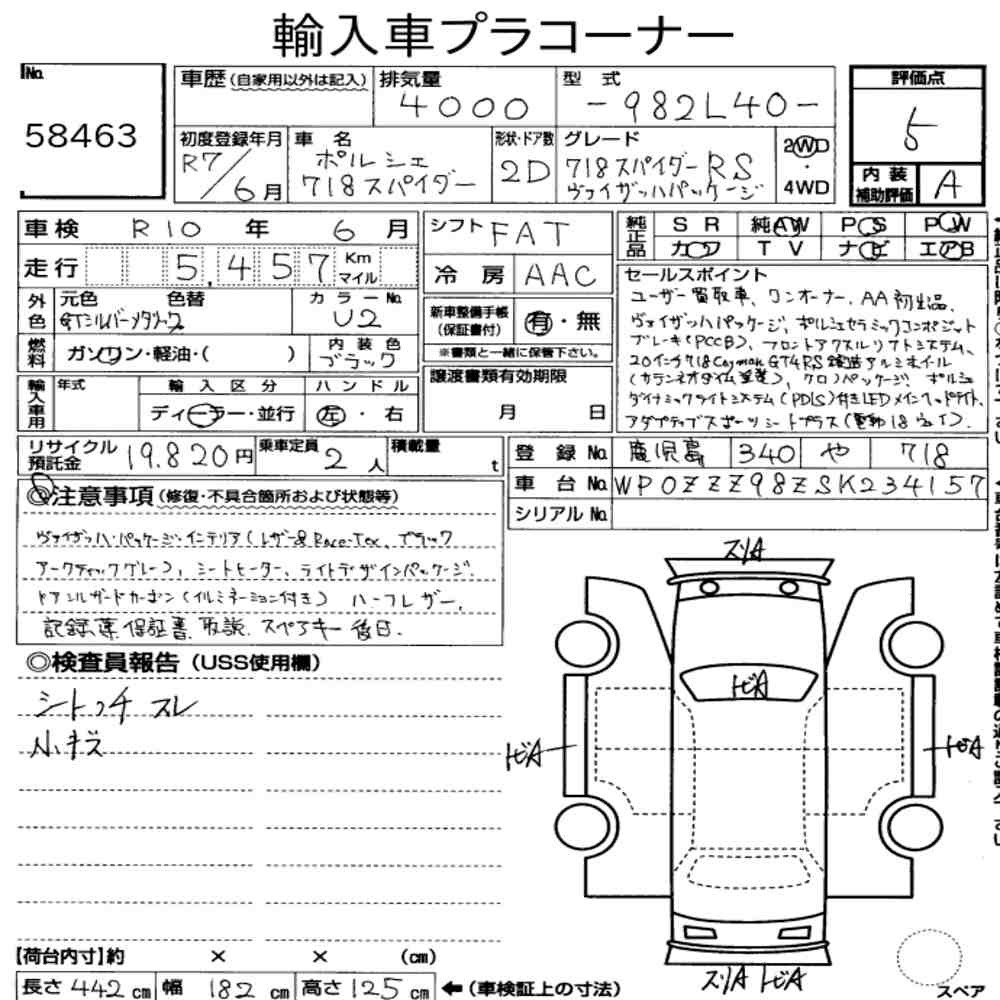 輸入車プラコーナー
No.
58463
車歴 (自家用以外は記入)
排気量
4000
型 式
-982L40-
評価点
5
初度登録年月
R7/6月
車 名
ポルシェ
718スパイダー
形状・ドア数
2D
グレード
718スパイダーRS
ヴァイザッハパッケージ
2WD
・
4WD
内 装
補助評価
A
車検 R10 年 6 月
走行 5,457 Km マイル
シフト FAT
冷 房 AAC
純正品
SR 純AW PS PW
カワ TV ナビ エアB
外色
元色 色替
GTシルバーメタリック
カラーNo.
U2
燃料
ガソリン・軽油・( )
内 装 色
ブラック
新車整備手帳
(保証書付)
有・無
※書類と一緒に保管下さい。
セールスポイント
ユーザー買取車、ワンオーナー、AA初出品、
ヴァイザッハパッケージ、ポルシェセラミックコンポジット
ブレーキ(PCCB)、フロントアクスルリフトシステム、
20インチ718Cayman GT4RS鍛造アルミホイール
(カランネオダイム塗装)、クロノパッケージ ポルシェ
ダイナミックライトシステム(PDLS)付きLEDメインヘッドライト、
アダプティブスポーツシートプラス(電動18ウェイ).
輸入車用
年式
輸 入 区 分
ディーラー・並行
ハ ン ド ル
左・右
譲渡書類有効期限
月 日
リサイクル
預託金
19.820円
乗車定員
2 人
積載量
t
登 録 No. 鹿児島 340 や 718
車 台 No. WP0ZZZ98ZSK234157
シリアル No.
◎注意事項 (修復・不具合箇所および状態等)
ヴァイザッハ・パッケージ・インテリア(レザー&Race-Tex、ブラック
アークティックグレー)、シートヒーター、ライトデザインパッケージ.
ドアシルガードカーボン(イルミネーション付き) ハーフレザー,
記録簿 保証書 取説 スペアキー 後日.
◎検査員報告 (USS使用欄)
シートウチ スレ
小キズ
スリA
トビA
トビA
トビA
スリA トビA
【荷台内寸】約 × × (cm)
長さ 442 cm 幅 182 cm 高さ 125 cm ←(車検証上の寸法)
スペア